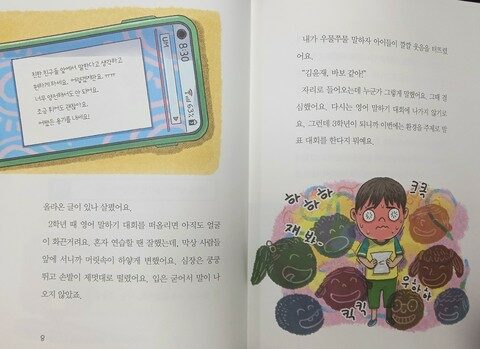 8:30
63%
친한 친구들 앞에서 말한다고 생각하고
편하게 하세요. 어렵겠지만요. ㅠㅠ
너무 완벽하려고 안 되어요.
조금 틀려도 괜찮아요.
어쨌든 용기를 내세요!
올라온 글이 있나 살폈어요.
2학년 때 영어 말하기 대회를 떠올리면 아직도 얼굴
이 화끈거려요. 혼자 연습할 땐 잘했는데, 막상 사람들
앞에 서니까 머릿속이 하얗게 변했어요. 심장은 쿵쿵
뛰고 손발이 제멋대로 떨렸어요. 입은 굳어서 말이 나
오지 않았죠.
8
내가 우물쭈물 말하자 아이들이 깔깔 웃음을 터뜨렸
어요.
"김윤재, 바보 같아!"
자리로 들어오는데 누군가 그렇게 말했어요. 그때 결
심했어요. 다시는 영어 말하기 대회에 나가지 않기로
요. 그런데 3학년이 되니까 이번에는 환경을 주제로 발
표 대회를 한다지 뭐예요.
하하하하
크큭
쟤 봐~
우하하
킥킥